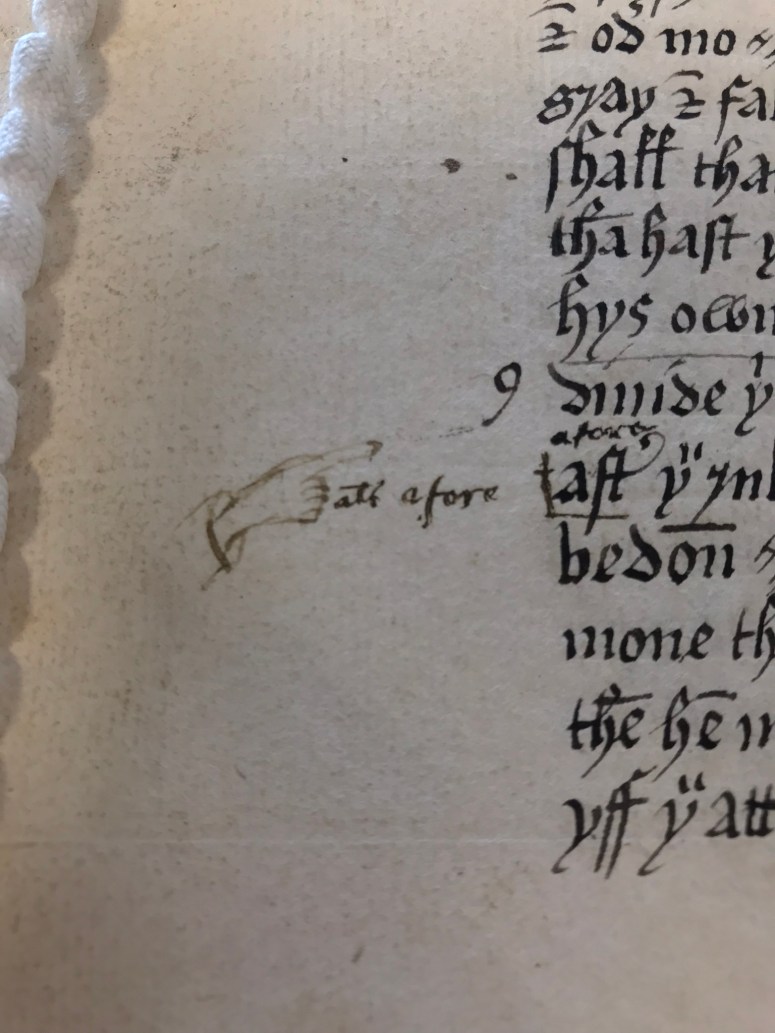 ⁊ od mo
gray ⁊ fa
shall tha
thā hast y
hys own
9 diuide y
afore
all afore aft yͭ ynl
bedon̄
mone th
thē hē m
yff yͧ att